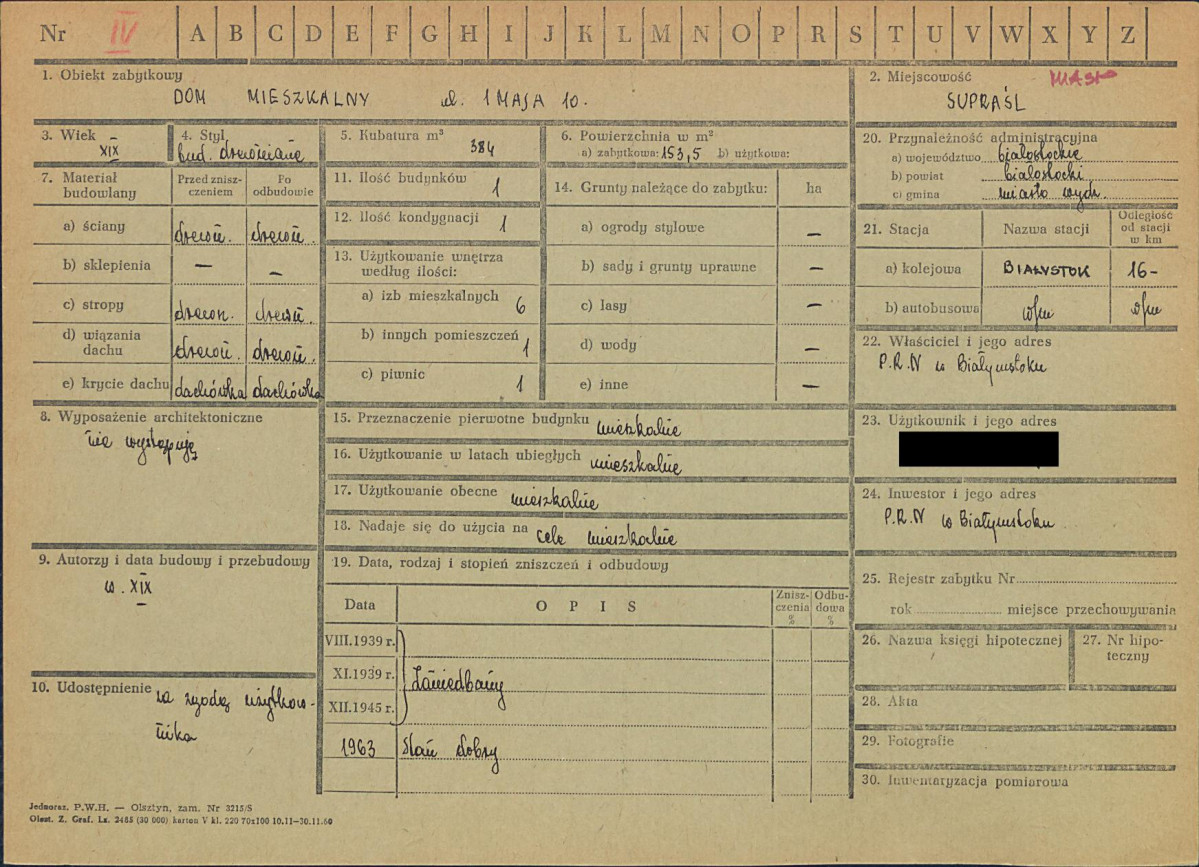 Nr IV A B C D E F G H I J K L M N O P R S T U V W X Y Z
1. Obiekt zabytkowy
DOM MIESZKALNY ul. 1 MAJA 10.
2. Miejscowość MIASTO
SUPRAŚL
3. Wiek
XIX
4. Styl
bud. drewniane
5. Kubatura m³
384
6. Powierzchnia w m²
a) zabytkowa: 153,5 b) użytkowa:
20. Przynależność administracyjna
a) województwo białostockie
b) powiat białostocki
c) gmina miasto wydz.
7. Materiał budowlany
Przed znisz-
czeniem
Po
odbudowie
a) ściany drewn. drewn.
b) sklepienia — —
c) stropy drewn. drewn.
d) wiązania
dachu drewn. drewn.
e) krycie dachu dachówka dachówka
11. Ilość budynków 1
12. Ilość kondygnacji 1
13. Użytkowanie wnętrza
według ilości:
a) izb mieszkalnych 6
b) innych pomieszczeń 1
c) piwnic 1
14. Grunty należące do zabytku: ha
a) ogrody stylowe —
b) sady i grunty uprawne —
c) lasy —
d) wody —
e) inne —
21. Stacja Nazwa stacji Odległość
od stacji
w km
a) kolejowa BIAŁYSTOK 16-
b) autobusowa
22. Właściciel i jego adres
P.R.N w Białymstoku
8. Wyposażenie architektoniczne
nie występują
15. Przeznaczenie pierwotne budynku mieszkalne
16. Użytkowanie w latach ubiegłych mieszkalne
17. Użytkowanie obecne mieszkalne
18. Nadaje się do użycia na cele mieszkalne
23. Użytkownik i jego adres
24. Inwestor i jego adres
P.R.N w Białymstoku
9. Autorzy i data budowy i przebudowy
w. XIX
19. Data, rodzaj i stopień zniszczeń i odbudowy
Data OPIS Znisz-
czenia
%
Odbu-
dowa
%
VIII.1939 r.
XI.1939 r. Zaniedbany
XII.1945 r.
1963 Stan dobry
10. Udostępnienie za zgodą użytkow-
nika
25. Rejestr zabytku Nr
rok miejsce przechowywania
26. Nazwa księgi hipotecznej
27. Nr hipo-
teczny
28. Akta
29. Fotografie
30. Inwentaryzacja pomiarowa
Jednoraz. P.W.H. — Olsztyn, zam. Nr 3215/S
Olszt. Z. Graf. Lz. 2465 (30 000) karton V kl. 220 70x100 10.11—30.11.60